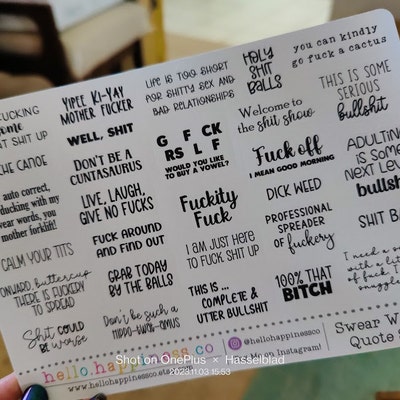 YIPEE KI-YAY
MOTHER FUCKER
LIFE IS TOO SHORT
FOR SHITTY SEX AND
BAD RELATIONSHIPS
HOLY
SHIT
BALLS
you can kindly
go fuck a cactus
FUCKING
IT SHIT UP
WELL, SHIT
G F CK
RS L F
WOULD YOU LIKE
TO BUY A VOWEL?
Welcome to
the shit show
THIS IS
SOME
SERIOUS
bullshit
THE CANOE
DON'T BE A
CUNTASAURUS
Fuck off
I MEAN GOOD MORNING
ADULTING
IS SOME
NEXT LEVEL
bullshit
auto correct,
ducking with my
swear words, you
mother forklift!
LIVE, LAUGH,
GIVE NO FUCKS
Fuckity
Fuck
DICK WEED
CALM YOUR TITS
FUCK AROUND
AND FIND OUT
I AM JUST HERE
TO FUCK SHIT UP
PROFESSIONAL
SPREADER
OF
fuckery
SHIT BA
ONWARD, buttercup
THERE IS FUCKERY
TO SPREAD
GRAB TODAY
BY THE BALLS
THIS IS...
COMPLETE &
UTTER BULLSHIT
100% THAT
BITCH
I need a
with a
of fuck
snuggle
Shit COULD
BE worse
Don't be such a
TWATO-FUCK-OMUS
hello.happiness.co
www.hellohappinessco.etsy
@hellohappinessco
on Instagram!
Swear W
Quote S
Shot on OnePlus × Hasselblad
2023.11.03 15:53